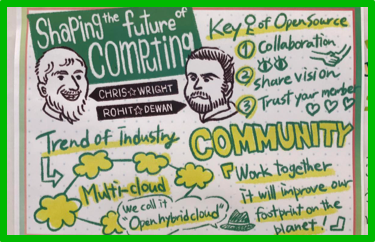 Shaping the future of
Computing
CHRIS☆WRIGHT
ROHIT☆DEWAN
Key of Opensource
1 Collaboration
2 share vision
3 Trust your member
Trend of Industry
COMMUNITY
Multi-cloud
We call it
"Open hybrid cloud"
Work together
it will improve our
footprint on the
planet!